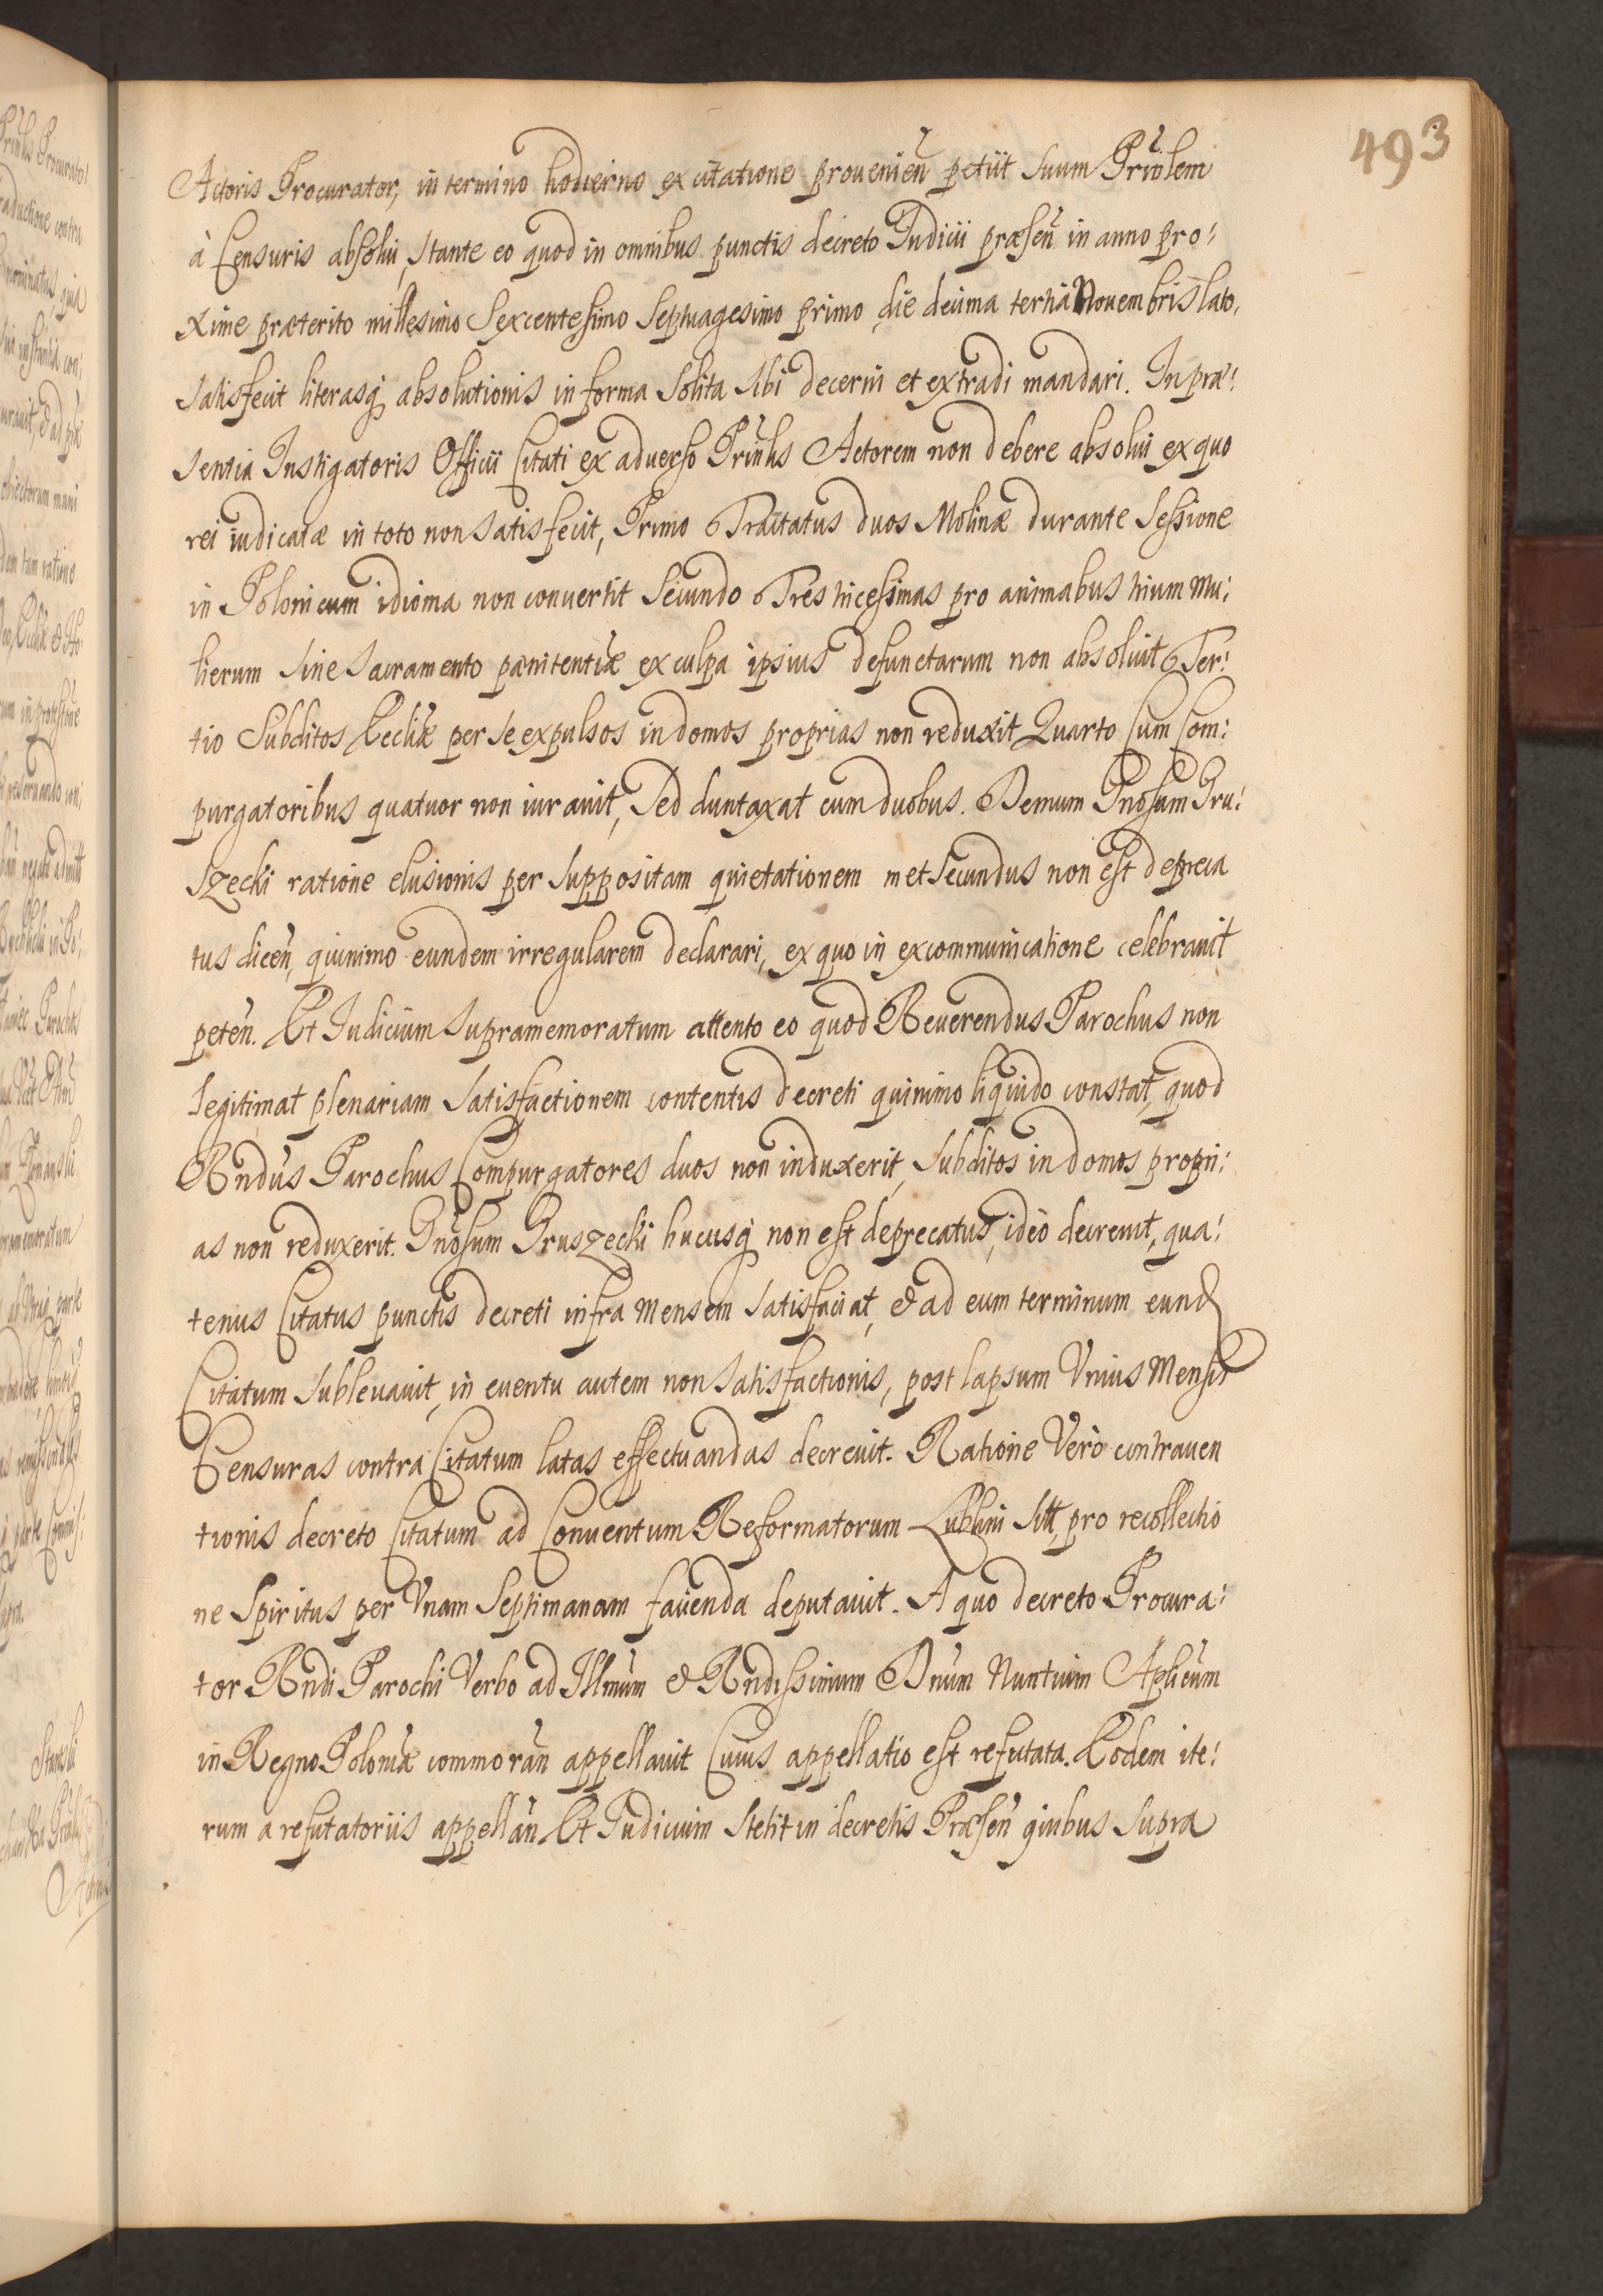 493
Actoris Procurator, in termino hodierno ex citatione prouenien̄ petiit suum Prin̄lem
à Censuris absolui, stante eo quod in omnibus punctis decreto Judicii præsen̄ in anno pro:
xime præterito millesimo Sexcentesimo Septuagesimo primo, die decima tertia Nouembris lato,
satisfecit literasq; absolutionis in forma solita sibi decerni et extradi mandari. In præ:
sentia Instigatoris Officii Citati ex aduerso Prin̄lis Actorem non debere absolui ex quo
rei iudicatæ in toto non satisfecit, Primo Tractatus duos Molinæ durante Sessione
in Polonicum idioma non conuertit Secundo Tres tricesimas pro animabus trium Mu:
lierum sine Sacramento pænitentiæ ex culpa ipsius defunctarum non absoluit Ter:
tio Subditos Eccliæ per se expulsos in domos proprias non reduxit Quarto Cum Com:
purgatoribus quatuor non iurauit, Sed duntaxat cum duobus. Demum Gn̄osum Gru:
szecki ratione elusionis per suppositam quietationem met secundus non est depreca
tus dicen̄, quinimo eundem irregularem declarari, ex quo in excommunicatione celebrauit
peten̄. Et Judicium supramemoratum attento eo quod Reuerendus Parochus non
legitimat plenariam satisfactionem contentis decreti quinimo liquido constat, quod
Rndus Parochus Compurgatores duos non induxerit, subditos in domos propri:
as non reduxerit. Gn̄osum Gruszecki hucusq; non est deprecatus, ideo decreuit, qua:
tenus Citatus punctis decreti infra mensem satisfaciat, & ad eum terminum eund
Citatum subleuauit, in euentu autem non satisfactionis, post lapsum Vnius Mensis
Censuras contra Citatum latas effectuandas decreuit. Ratione Verò contrauen
tionis decreto Citatum ad Conuentum Reformatorum Lublini sitt, pro recollectio
ne Spiritus per Vnam Septimanam facienda deputauit. A quo decreto Procura:
tor Rndi Parochi Verbo ad Illmum & Rndissimum Dnum Nuntium Aplicum
in Regno Poloniæ commoran̄ appellauit Cuius appellatio est refutata. Eodem ite:
rum a refutatoriis appellan̄ Et Judicium stetit in decretis Præsen̄ quibus supra